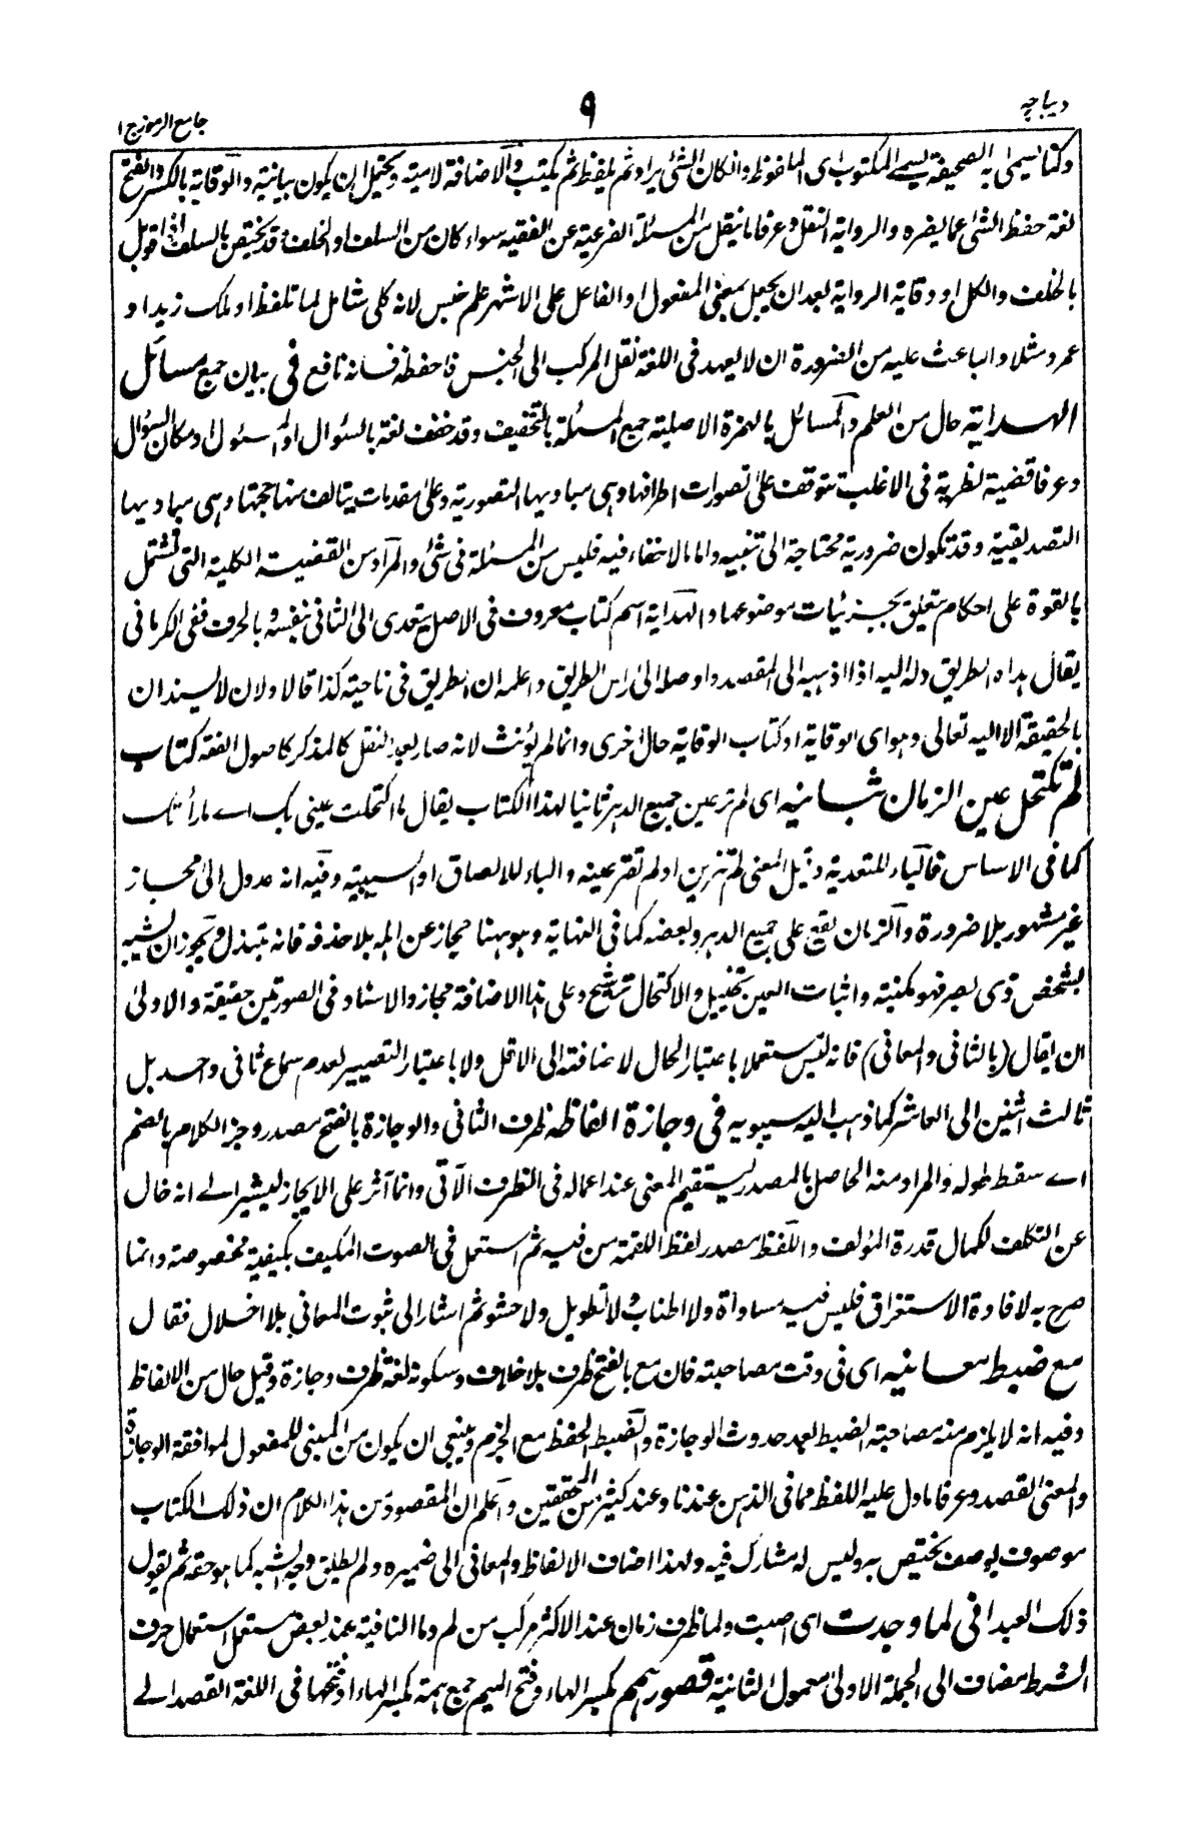 ديباچه
٩
جامع الرموز ج ١
وكتا يسمى به الصحيفة يسمى المكتوب اى الملفوظ وانكان الشئ يراد ثم يلفظ ثم يكتب والاضافة لامية ويحتمل ان يكون بيانية والوقاية بالكسر والفتح
لغة حفظ الشئ عما يضره والرواية النقل وعرفا ما ينقل من المسئلة الفرعية عن الفقيه سواء كان من السلف او الخلف وقد يختص بالسلف اذا قوبل
بالخلف والكل او وقاية الرواية بعد ان يجعل بمعنى المفعول او الفاعل على الاشهر علم جنس لانه كلى شامل لما تلفظ او ملك زيد او
عمرو مثلا والباعث عليه من الضرورة ان لا يعهد فى اللغة نقل المركب الى الجنس فاحفظه فانه نافع فى بيان جمع مسائل
الهداية حال من العلم والمسائل بالهمزة الاصلية جمع المسئلة بالتخفيف وقد خفف لغة بالسئوال او المسئول او مكان السئوال
وعرفا قضية نظرية فى الاغلب تتوقف على تصورات اطرافها وهى مباديها التصورية وعلى مقدمات يتالف منها حجتها وهى مباديها
التصديقية وقد تكون ضرورية محتاجة الى تنبيه واما ما لا خفاء فيه فليس من المسئلة فى شئ والمراد من القضية الكلية التى تشتمل
بالقوة على احكام يتعلق بجزئيات موضوعها والهداية اسم كتاب معروف فى الاصل يتعدى الى الثانى بنفسه وبالحرف ففى الكرمانى
يقال هداه الطريق دله اليه اذا اذهبه الى المقصد واوصله الى راس الطريق واعلمه ان الطريق فى ناحية كذا قالا ولان لا يسند ان
بالحقيقة الا اليه تعالى وهو اى الوقاية او كتاب الوقاية حال اخرى وانما لم يؤنث لانه صار بعد النقل كالمذكر كاصول الفقه كتاب
لم تكتحل عين الزمان بثانيه اى لم تر عين جميع الدهر ثانيا لهذا الكتاب يقال ما اكتحلت عينى بك اے ما رأيتك
كما فى الاساس فالباء للتعدية وقيل المعنى لم تتزين او لم تقر عينه والباء للالصاق او السببية وفيه انه عدول الى مجاز
غير مشهور بلا ضرورة والزمان يقع على جميع الدهر وبعضه كما فى النهاية وهو ههنا مجاز عن اهله بلا حذفه فانه مبتذل ويجوز ان يشبه
بشخص ذى بصر فهو مكنية واثبات العين تخييل والاكتحال ترشيح وعلى هذا الاضافة مجاز والاسناد فى الصورتين حقيقة والاولى
ان يقال (بالثانى والمعانى) فانه ليس مستعملا باعتبار الحال لاضافته الى الاقل ولا باعتبار التصيير لعدم سماع ثانى واحد بل
ثالث اثنين الى العاشر كما ذهب اليه سيبويه فى وجازة الفاظه ظرف الثانى والوجازة بالفتح مصدر وجز الكلام بالضم
اے سقط طوله والمراد منه الحاصل بالمصدر ليستقيم المعنى عند اعماله فى الظرف الآتى وانما آثر على الايجاز ليشير اے انه خال
عن التكلف لكمال قدرة المؤلف واللفظ مصدر لفظ اللقمة من فيه ثم استعمل فى الصوت المكيف بكيفية مخصوصة وانما
صرح به لافادة الاستغراق فليس فيه مساواة ولا اطناب ولا تطويل ولا حشو ثم اشار الى ثبوت المعانى بلا اخلال فقال
مع ضبط معانيه اى فى وقت مصاحبته فان مع بالفتح ظرف بلا خلاف وسكونه لغة ظرف وجازة وقيل حال من الالفاظ
وفيه انه لا يلزم منه مصاحبة الضبط بعد حدوث الوجازة والضبط الحفظ مع الحزم وينبغى ان يكون من المبنى للمفعول لموافقة الوجازة
والمعنى القصد وعرفا ما دل عليه اللفظ مما فى الذهن عندنا وعند كثير من المحققين واعلم ان المقصود من هذا الكلام ان ذلك الكتاب
موصوف بوصف يختص به وليس له مشارك فيه ولهذا اضاف الالفاظ والمعانى الى ضميره ولم يطلق وجه الشبه كما هو حقه ثم يقول
ذلك العبد انى لما وجدت اى اصبت ولما ظرف زمان عند الاكثر مركب من لم وما النافية عند بعض مستعمل استعمال حرف
الشرط مضاف الى الجملة الاولى معمول الثانية قصور همم بكسر الهاء وفتح الميم جمع همة بكسر الهاء او فتحها فى اللغة القصد الے